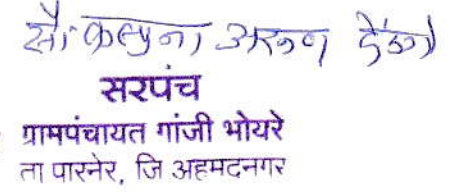 सौ. कल्पना अरुण
सरपंच
ग्रामपंचायत गांजी भोयरे
ता पारनेर, जि अहमदनगर